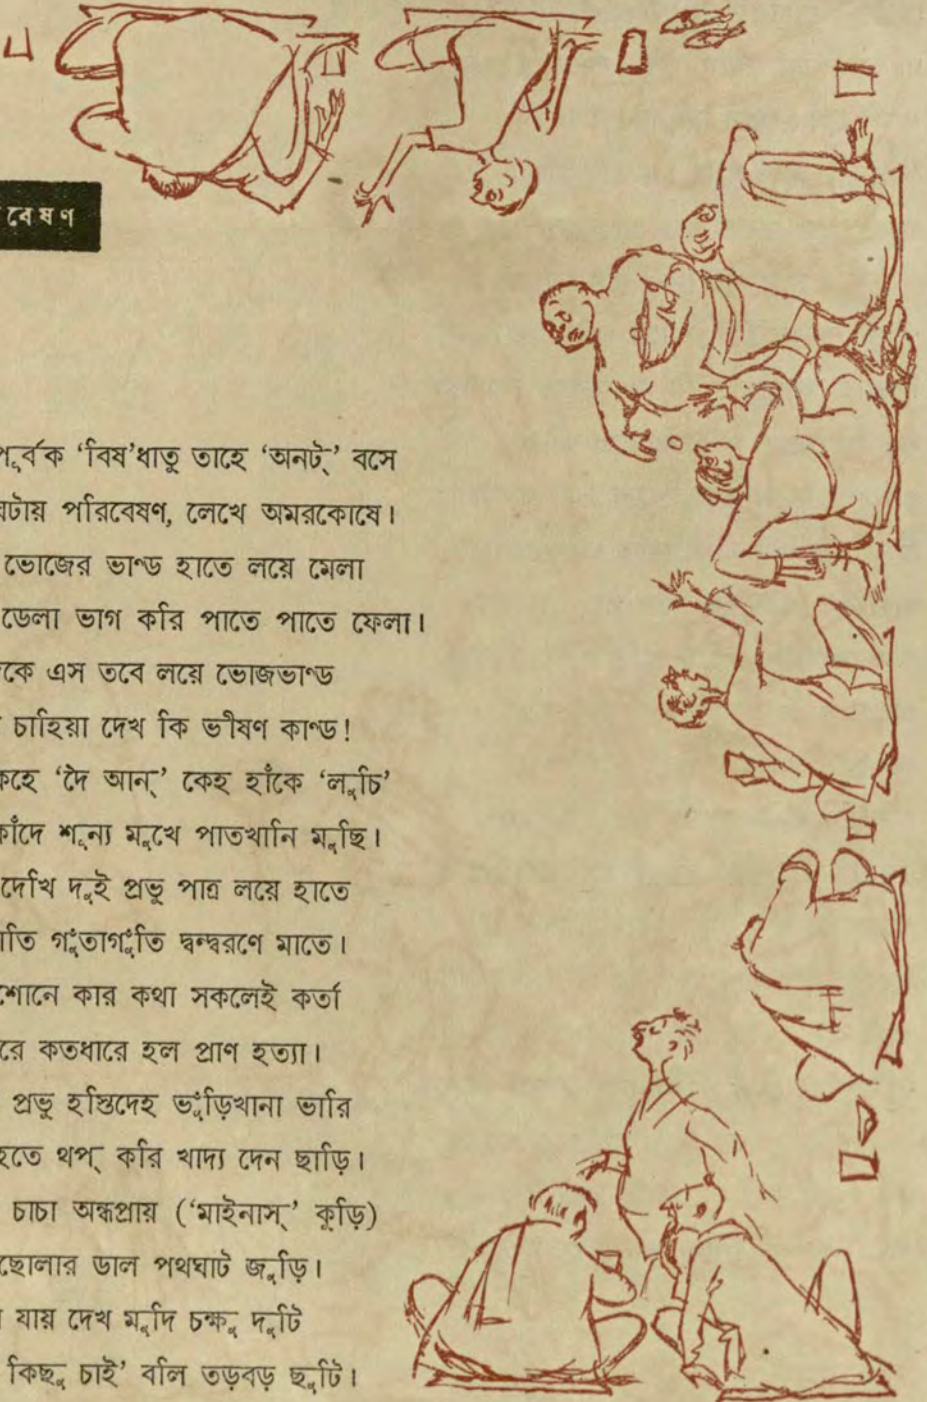 বেষণ
পূর্বক ‘বিষ’ধাতু তাহে ‘অনট্’ বসে
ঘটায় পরিবেষণ, লেখে অমরকোষে।
ভোজের ভাণ্ড হাতে লয়ে মেলা
ডেলা ভাগ করি পাতে পাতে ফেলা।
কে এস তবে লয়ে ভোজভাণ্ড
চাহিয়া দেখ কি ভীষণ কাণ্ড!
কহে ‘দৈ আন্’ কেহ হাঁকে ‘লুচি’
কাঁদে শূন্য মুখে পাতখানি মুছি।
দেখি দুই প্রভু পাত্র লয়ে হাতে
াতি গুঁতাগুঁতি দ্বন্দ্বরণে মাতে।
শোনে কার কথা সকলেই কর্তা
রে কতধারে হল প্রাণ হত্যা।
প্রভু হস্তিদেহ ভুঁড়িখানা ভারি
হতে থপ্ করি খাদ্য দেন ছাড়ি।
চাচা অন্ধপ্রায় (‘মাইনাস্’ কুড়ি)
ছোলার ডাল পথঘাট জুড়ি।
যায় দেখ মুদি চক্ষু দুটি
কিছু চাই’ বলি তড়বড় ছুটি।